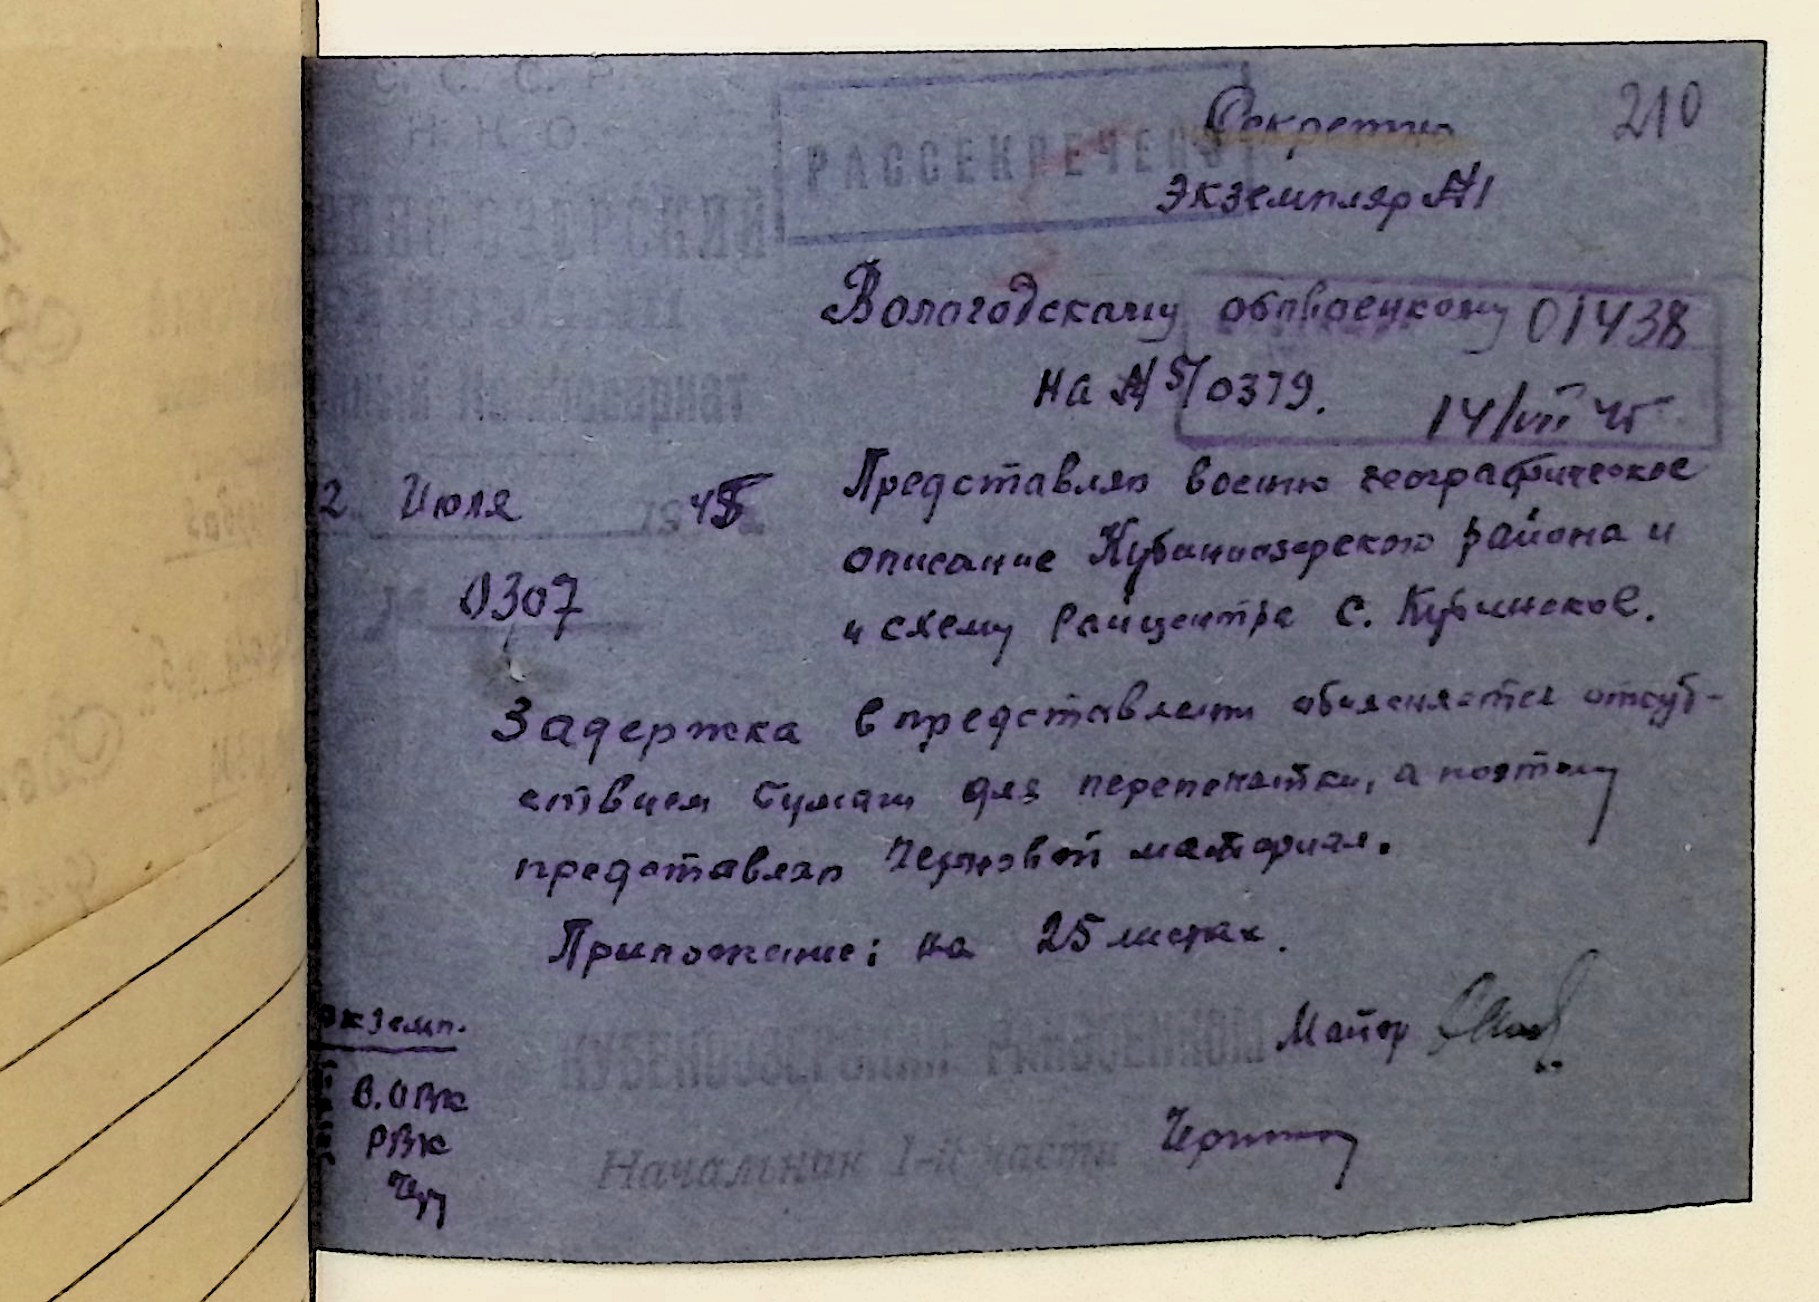 С. С. С. Р.
Н. К. О.
РАССЕКРЕЧЕНО
Секретно
210
Экземпляр №1
Вологодскому облвоенкому
01438
на № 5/0379.
14/VII 45
2 Июля 1945
0307
Представляю военно географическое
описание Кубиноозерского района и
и схему райцентра с. Кубинское.
Задержка в представлении объясняется отсут-
ствием бумаги для перепечатки, а поэтому
представляю черновой материал.
Приложение: на 25 листах.
Майор
КУБЕНООЗЕРСКИЙ РАЙВОЕНКОМ
Начальник 1-й части
Экземп.
В.ОВК
РВК